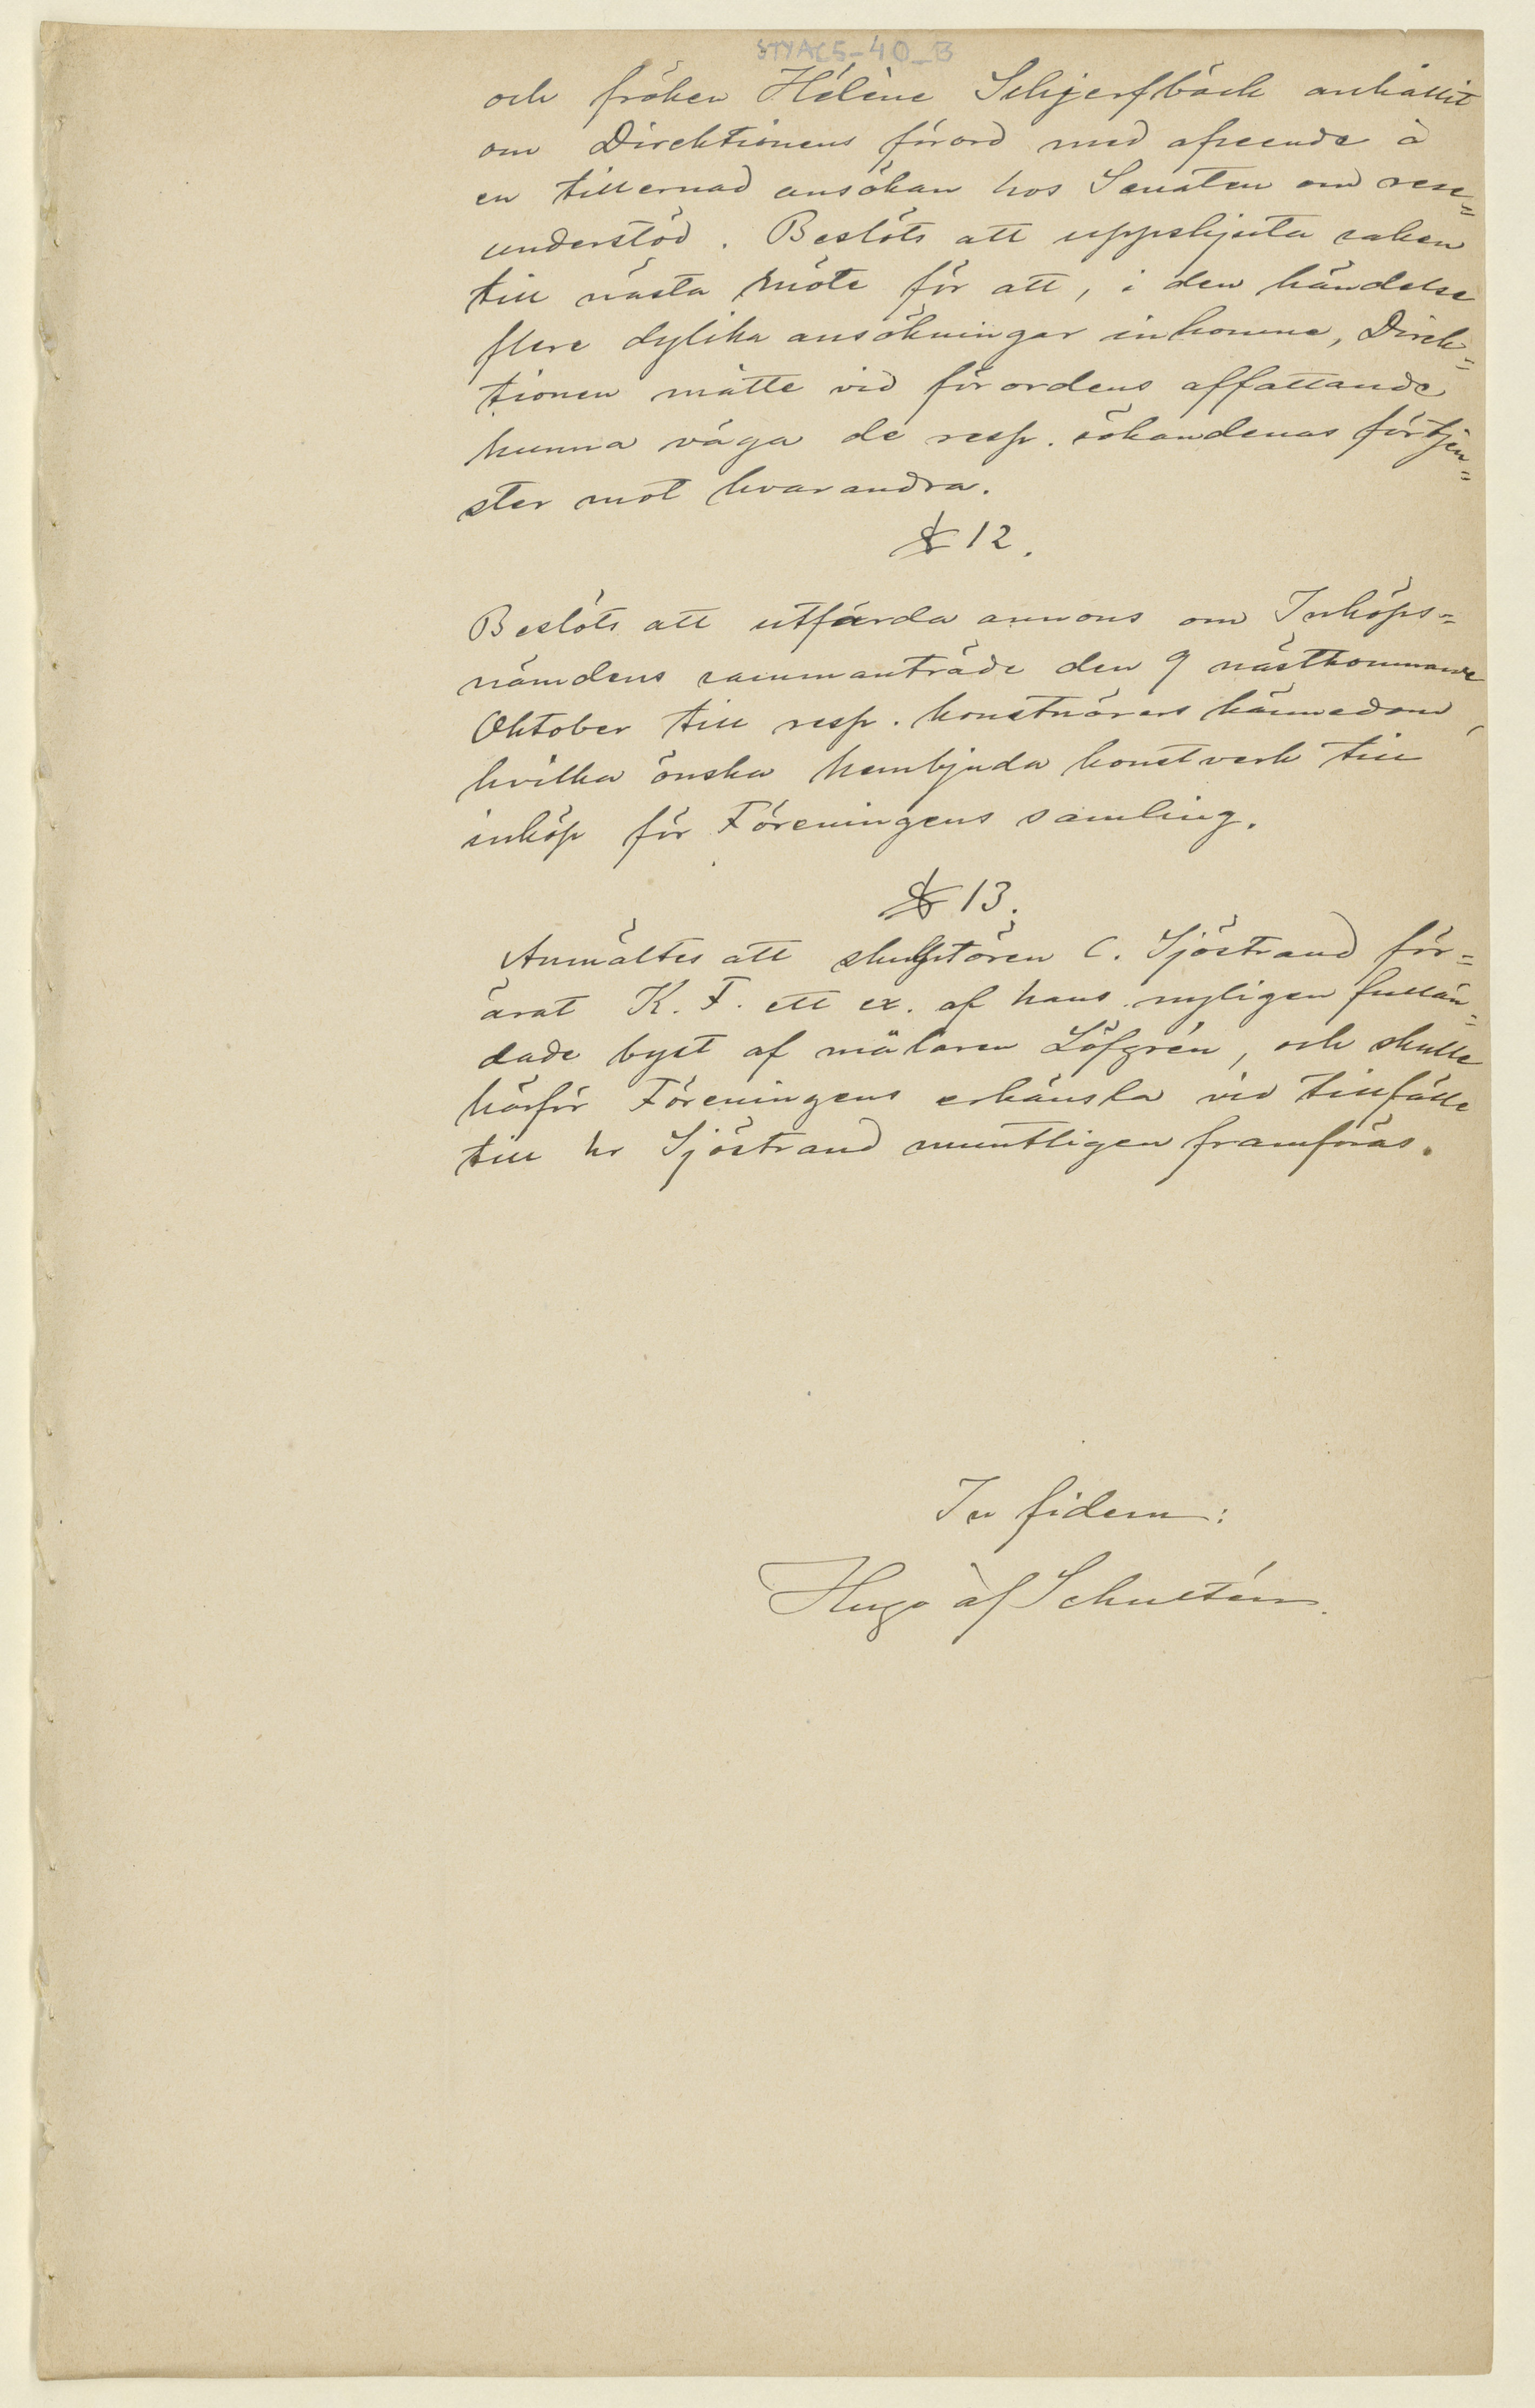 STYAC5-40_B
och fröken Hélène Schjerfbäck anhållit
om Direktionens förord med afseende å
en tillernad ansökan hos Senaten om rese=
understöd. Beslöts att uppskjuta saken
till nästa möte för att, i den händelse
flere dylika ansökningar inkomme, Direk=
tionen måtte vid förordens affattande
kunna väga de resp. sökandenas förtjen=
ster mot hvarandra.
§ 12.
Beslöts att utfärda annons om Inköps=
nämdens sammanträde den 9 nästkommande
Oktober till resp. konstnärers kännedom,
hvilka önska hembjuda konstverk till
inköp för Föreningens samling.
§ 13.
Anmältes att skulptören C. Sjöstrand för=
ärat K. F. ett ex. af hans nyligen fullän=
dade byst af målaren Löfgrén, och skulle
härför Föreningens erkänsla vid tillfälle
till hr Sjöstrand muntligen framföras.
In fidem:
Hugo af Schultén.